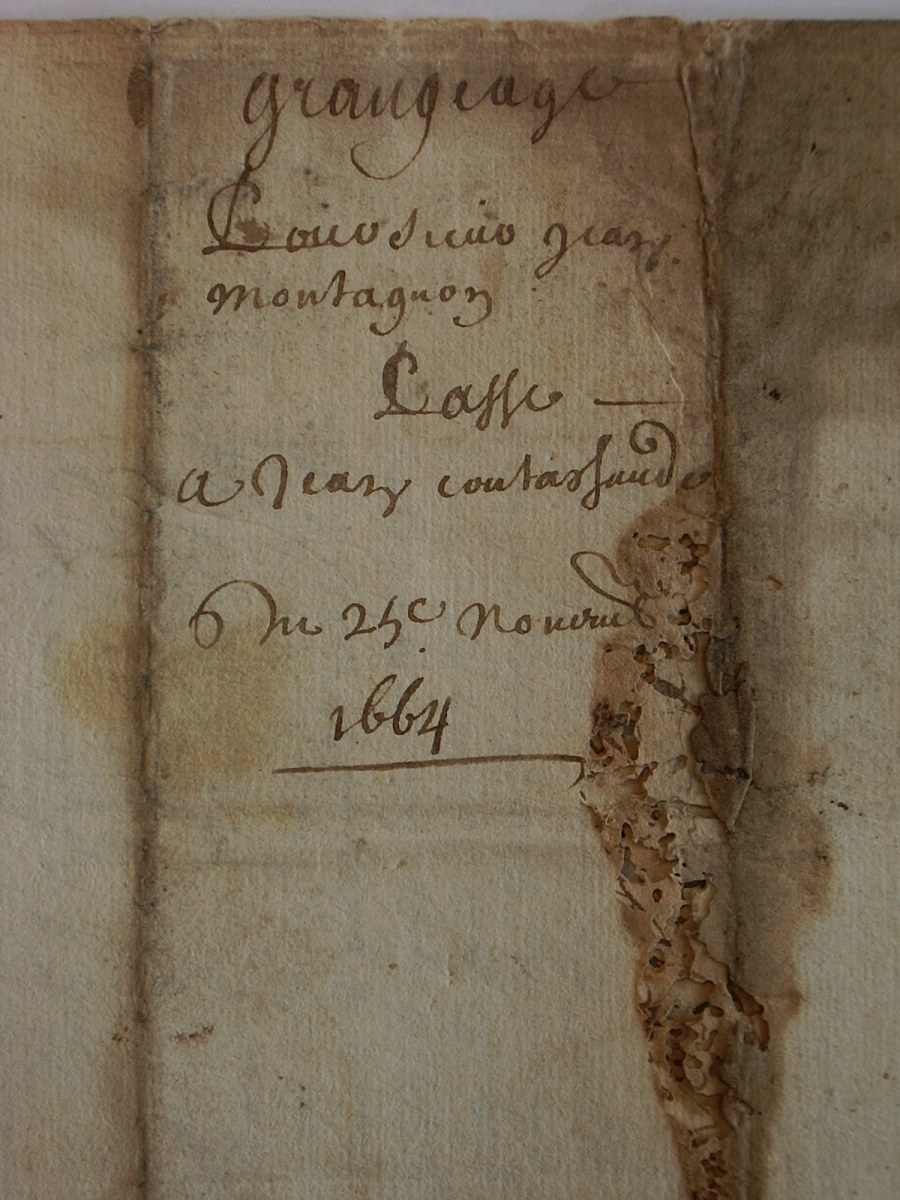 grangeage
Pour sieur Jean
montagnon
Passé
a Jean contassaud
Du 25e Novemb
1664